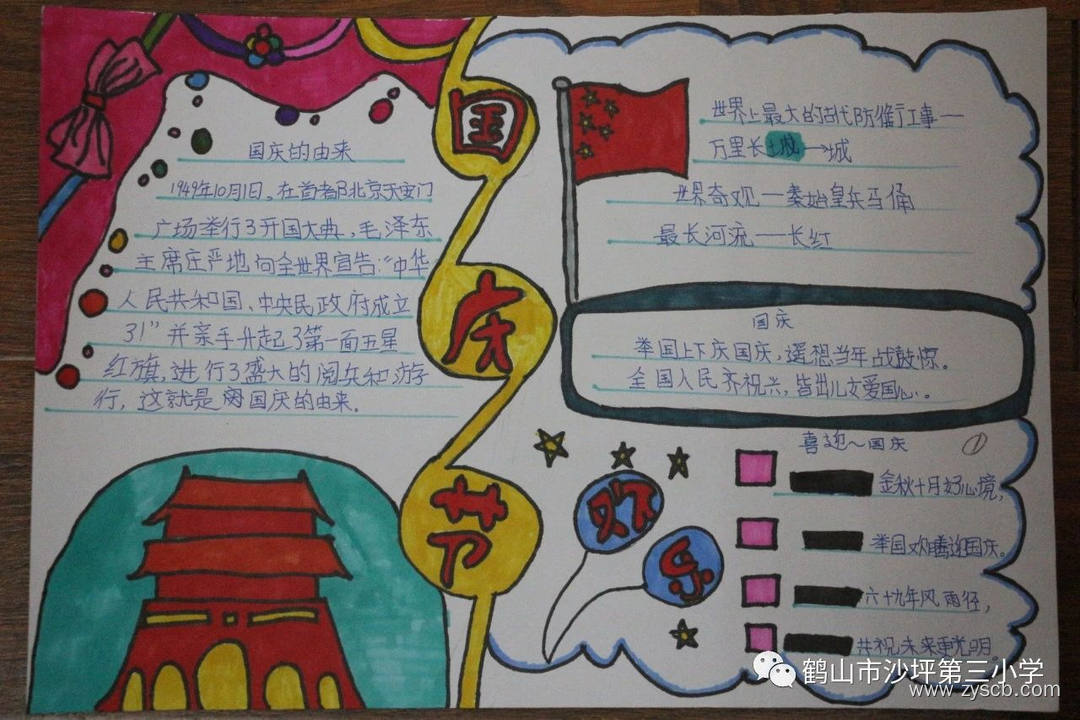 国庆节
国庆的由来
1949年10月1日。在首都北京天安门
广场举行3开国大典，毛泽东
主席庄严地向全世界宣告：“中华
人民共和国、中央民政府成立
31”并亲手升起3第一面五星
红旗，进行3盛大的阅兵和游
行，这就是国庆的由来。
世界上最大的古代防御工事一
万里长城→城
世界奇观一秦始皇兵马俑
最长河流一长红
国庆
举国上下庆国庆，遥想当年战鼓惊。
全国人民齐祝兴，皆出儿女爱国心。
欢乐
喜迎～国庆
①
金秋十月好心境，
举国欢腾迎国庆。
六十九年风雨径，
共祝未来更光明。
鹤山市沙坪第三小学
www.zyscb.com